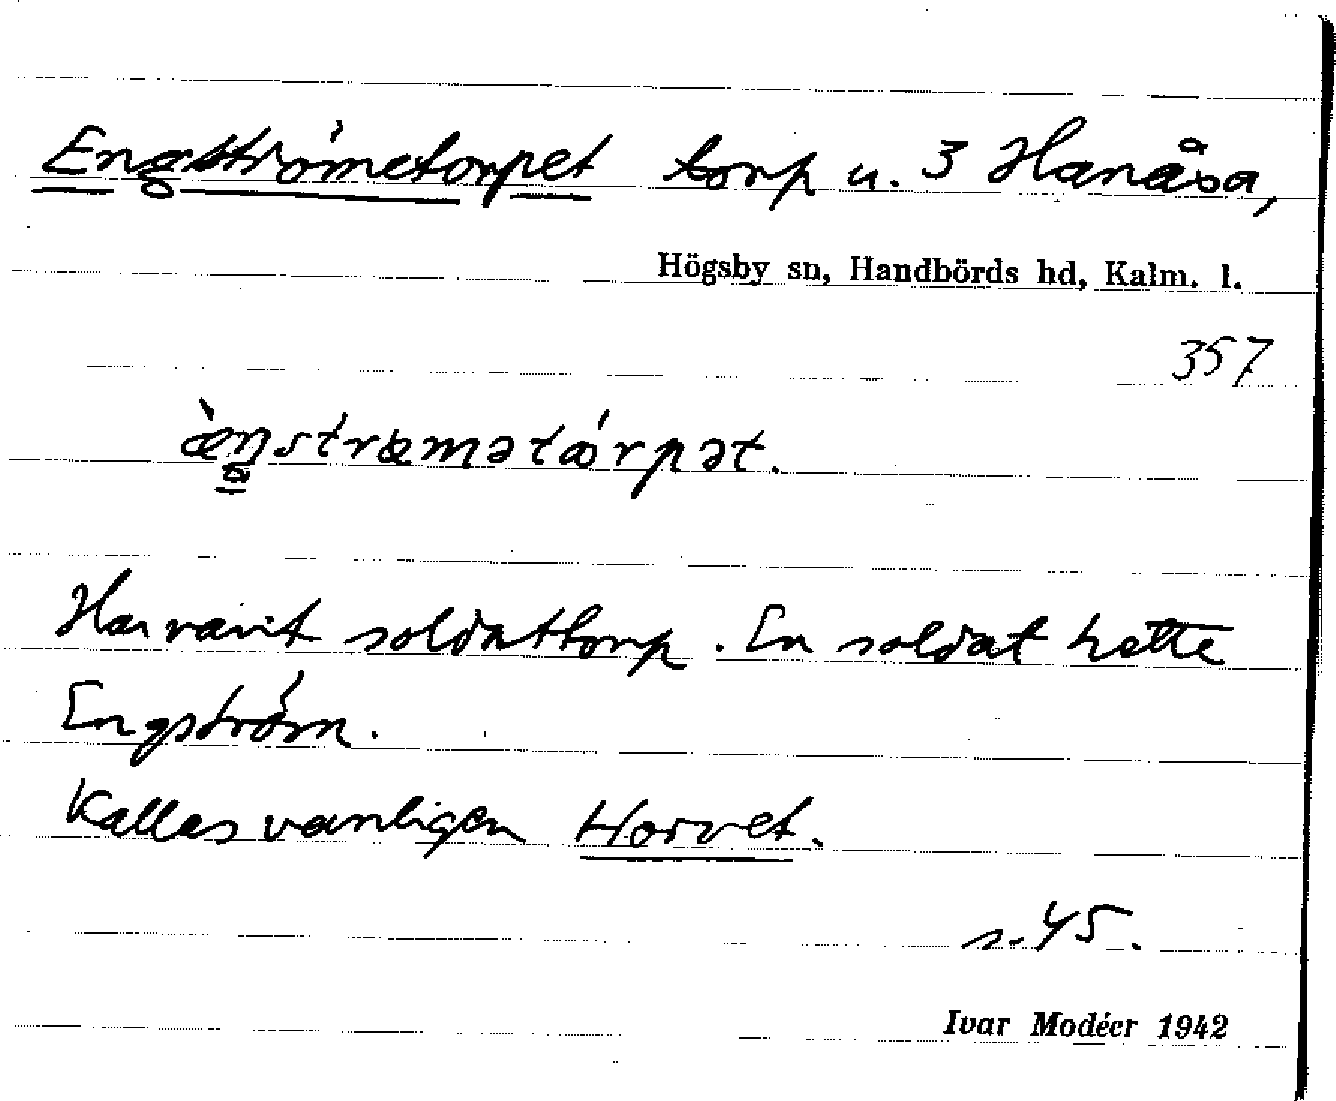 Engströmetorpet torp u. 3 Hanåsa,
Högsby sn, Handbörds hd, Kalm. l.
357
æ̀ŋstrœmətǿrpət.
Har varit soldattorp. En soldat hette
Engström.
Kallas vanligen Horvet.
s. 45.
Ivar Modéer 1942